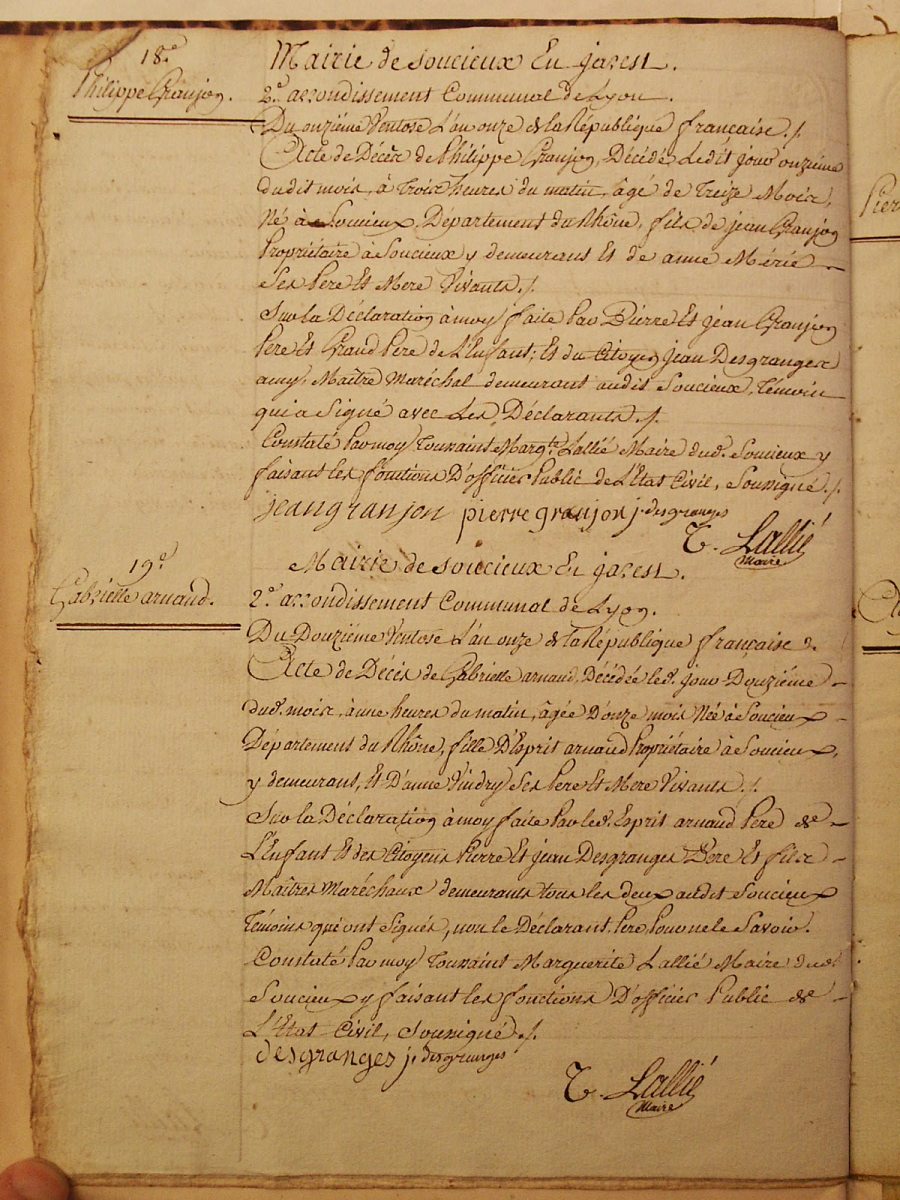 18.e
Philippe Granjon.
Mairie de Soucieux En jarest.
2.e arrondissement Communal de Lyon.
Du onziéme Ventose L'an onze de la République française ./.
Acte de Décèr de Philippe Granjon, Décédé Ledit jour onziéme
dudit mois, à Troix heures du matin, âgé de Treize Moix,
Né à Soucieux, Département du Rhône, fils de jean Granjon
Propriétaire à Soucieux y demeurans Et de anne Mérie
Ses Pere Et Mere Vivants ./.
Sur la Déclaration à moy faite Par Pierre Et jean Granjon
Pere Et Grand Pere de L'Enfant; Et du Citoyen jean Desgranges
amy, Maître Maréchal demeurant audit Soucieux, Témoin
qui a Signé avec Les Déclarants ./.
Constaté Par moy Toussaint Marg.te Lallié Maire dud. Soucieux y
faisant les fonctions D'officier Public de L'Etat Civil, Soussigné ./.
jean granjon pierre granjon j. desgranges
T. Lallié
Maire
19.e
Gabrielle arnaud.
Mairie de Soucieux En jarest.
2.e arrondissement Communal de Lyon.
Du Douziéme Ventose L'an onze de la République française
Acte de Décès de Gabrielle arnaud, Décédée led. jour Douziéme
dud. moix, à une heures du matin, âgée D'onze mois Née à Soucieux
Département du Rhône, fille D'Esprit arnaud Propriétaire à Soucieux,
y demeurans, Et D'anne Vindry Ses Pere Et Mere Vivants ./.
Sur la Déclaration à moy faite Par led. Esprit arnaud Pere de
L'Enfant Et des Citoyens Pierre Et jean Desgranges Pere Et fils
Maîtres Maréchaux demeurants tous les deux audit Soucieux
Témoins qui ont Signés, non le Déclarant Pere Pour ne le Savoir.
Constaté Par moy Toussaint Marguerite Lallié Maire dud.
Soucieux y faisant les fonctions D'officier Public de
L'Etat Civil, Soussigné ./.
desgranges j. desgranges
T. Lallié
Maire
Pier